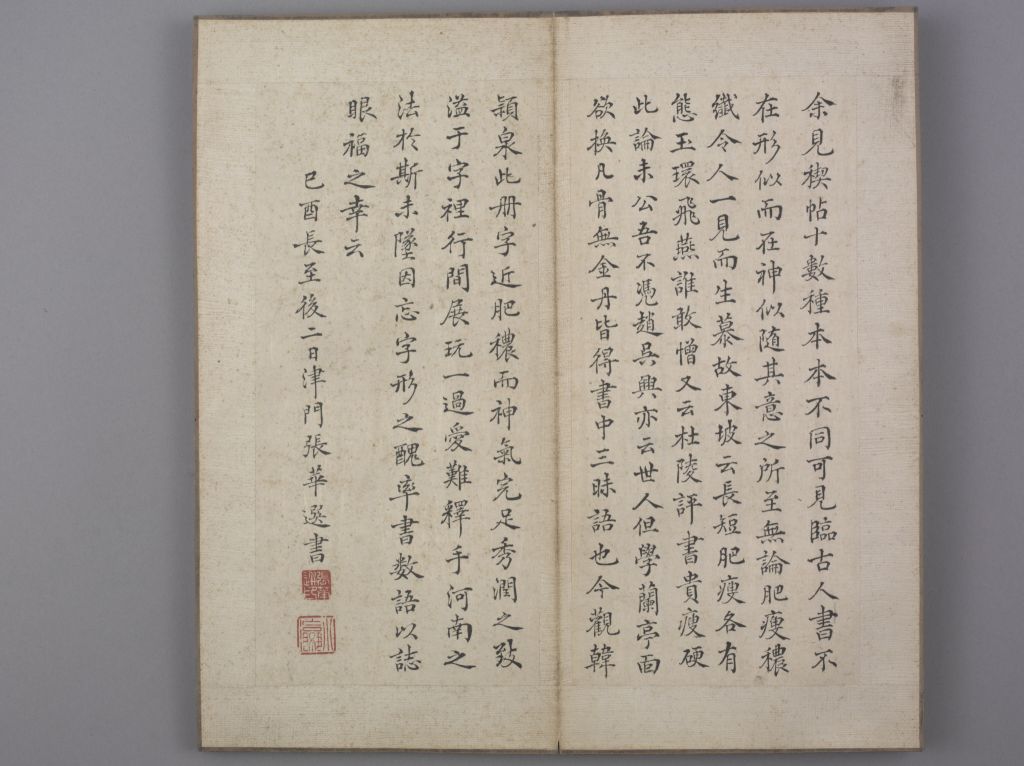 余見禊帖十數種本本不同可見臨古人書不
在形似而在神似随其意之所至無論肥瘦穠
纖令人一見而生慕故東坡云長短肥瘦各有
態玉環飛燕誰敢憎又云杜陵評書貴瘦硬
此論未公吾不憑趙吳興亦云世人但學蘭亭面
欲换凡骨無金丹皆得書中三昧語也今觀韓
潁泉此册字近肥穠而神氣完足秀潤之致
溢于字裡行間展玩一過愛難釋手河南之
法於斯未墜因忘字形之醜率書数語以誌
眼福之幸云
己酉長至後二日津門張華選書